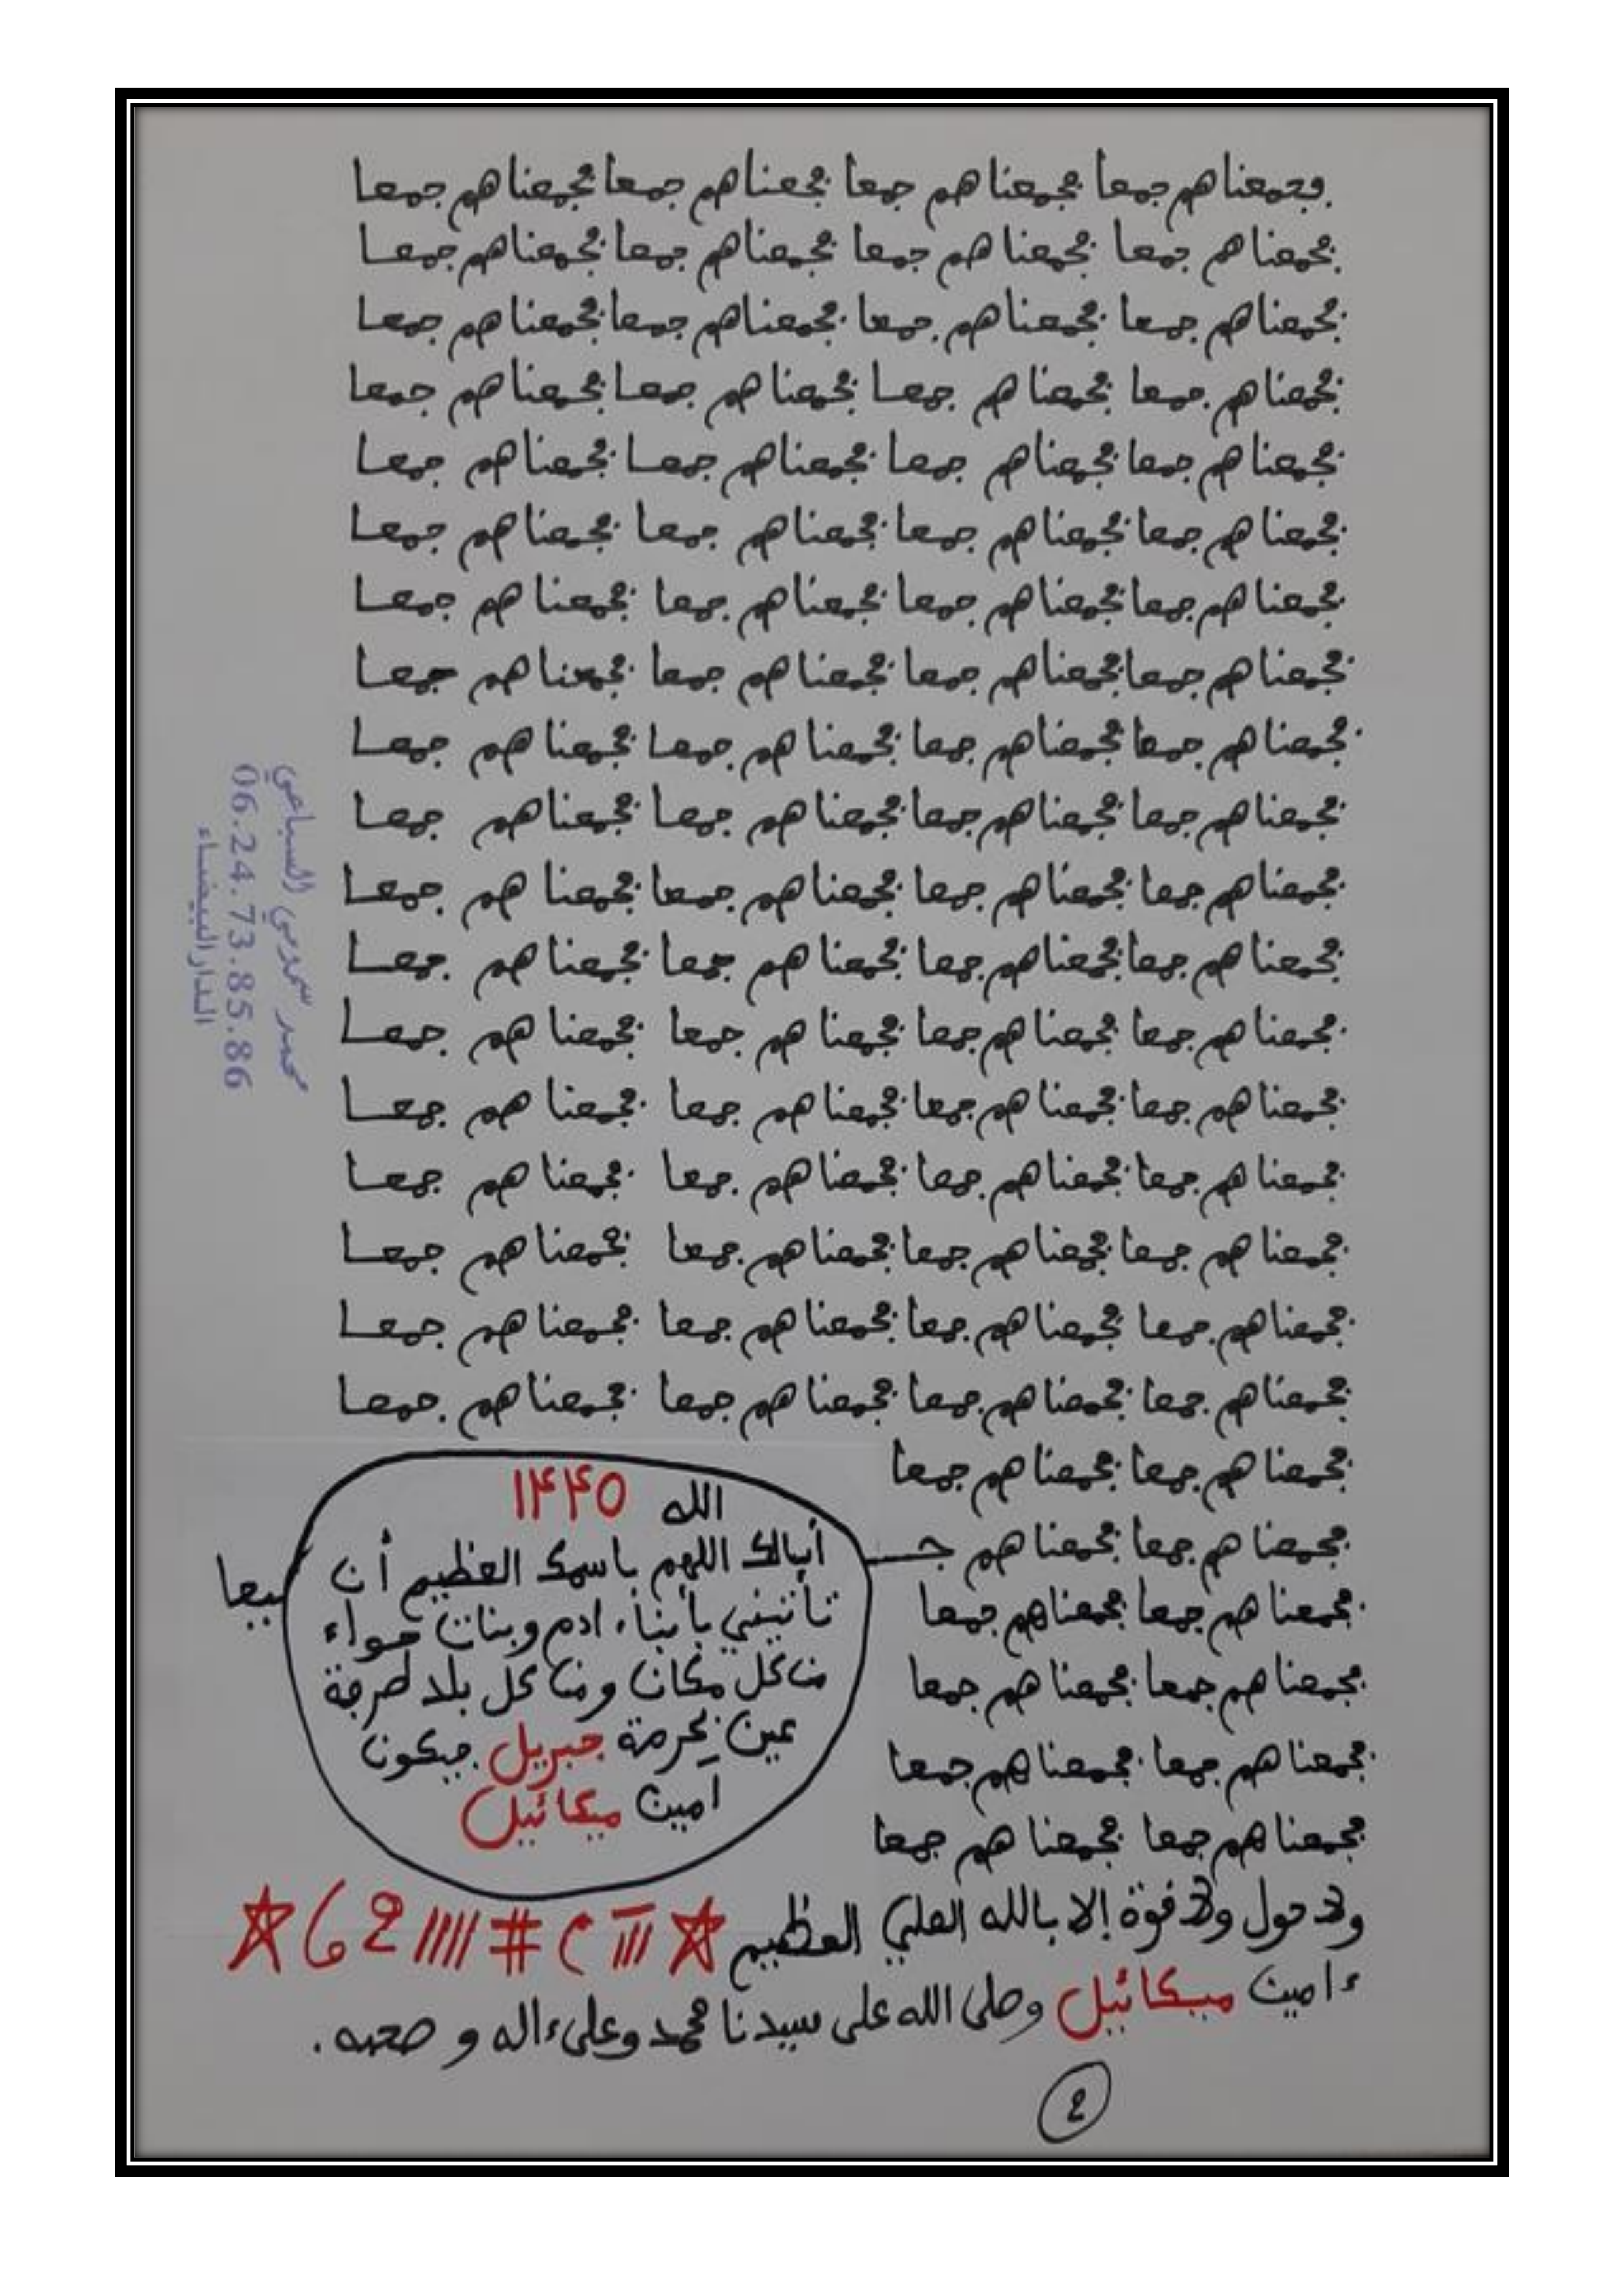 فجمعناهم جمعا فجمعناهم جمعا فجمعناهم جمعا فجمعناهم جمعا
فجمعناهم جمعا فجمعناهم جمعا فجمعناهم جمعا فجمعناهم جمعا
فجمعناهم جمعا فجمعناهم جمعا فجمعناهم جمعا فجمعناهم جمعا
فجمعناهم جمعا فجمعناهم جمعا فجمعناهم جمعا فجمعناهم جمعا
فجمعناهم جمعا فجمعناهم جمعا فجمعناهم جمعا فجمعناهم جمعا
فجمعناهم جمعا فجمعناهم جمعا فجمعناهم جمعا فجمعناهم جمعا
فجمعناهم جمعا فجمعناهم جمعا فجمعناهم جمعا فجمعناهم جمعا
فجمعناهم جمعا فجمعناهم جمعا فجمعناهم جمعا فجمعناهم جمعا
فجمعناهم جمعا فجمعناهم جمعا فجمعناهم جمعا فجمعناهم جمعا
فجمعناهم جمعا فجمعناهم جمعا فجمعناهم جمعا فجمعناهم جمعا
فجمعناهم جمعا فجمعناهم جمعا فجمعناهم جمعا فجمعناهم جمعا
فجمعناهم جمعا فجمعناهم جمعا فجمعناهم جمعا فجمعناهم جمعا
فجمعناهم جمعا فجمعناهم جمعا فجمعناهم جمعا فجمعناهم جمعا
فجمعناهم جمعا فجمعناهم جمعا فجمعناهم جمعا فجمعناهم جمعا
فجمعناهم جمعا فجمعناهم جمعا فجمعناهم جمعا فجمعناهم جمعا
فجمعناهم جمعا فجمعناهم جمعا فجمعناهم جمعا فجمعناهم جمعا
فجمعناهم جمعا فجمعناهم جمعا فجمعناهم جمعا فجمعناهم جمعا
فجمعناهم جمعا فجمعناهم جمعا فجمعناهم جمعا فجمعناهم جمعا
فجمعناهم جمعا فجمعناهم جمعا
فجمعناهم جمعا فجمعناهم جـ ـيعا
فجمعناهم جمعا فجمعناهم جمعا
فجمعناهم جمعا فجمعناهم جمعا
فجمعناهم جمعا فجمعناهم جمعا
فجمعناهم جمعا فجمعناهم جمعا
الله ١٤٤٥
اللهم باسمك العظيم أن
تأتيني بأبناء ادم وبنات حواء
من كل مكان ومن كل بلد طرفة
عين بحرمة جبريل
امين ميكائيل
ولا حول ولا قوة إلا بالله العلي العظيم
ءامين ميكائيل وصلى الله على سيدنا محمد وعلى ءاله وصحبه .
٤
السباعي
06.24.73.85.86
الدار البيضاء